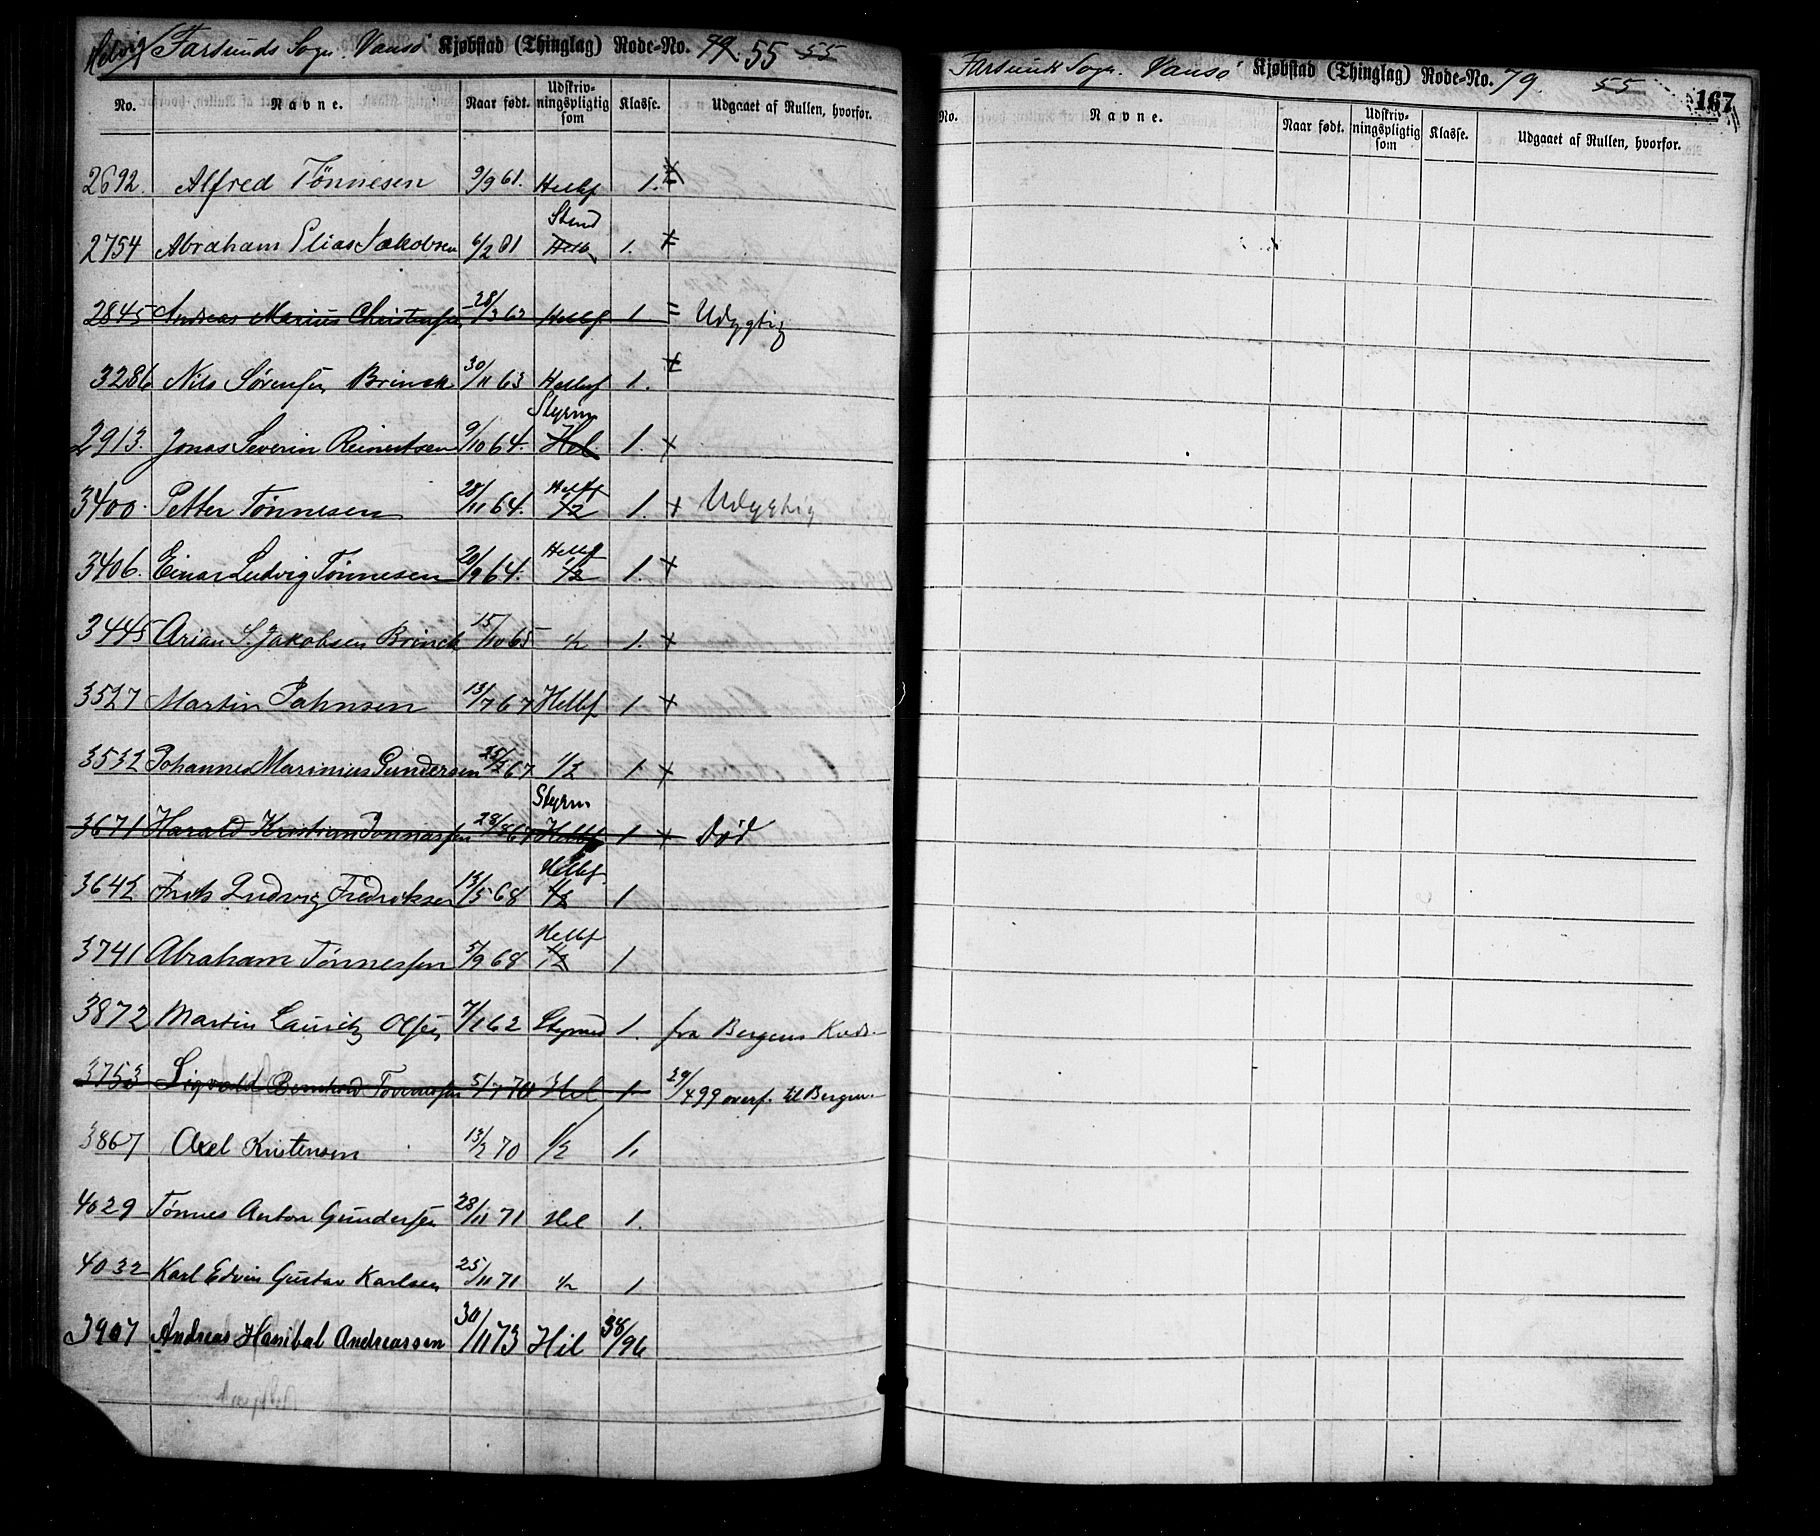 Farsunds Sogn. Vansö Kjøbstad (Thinglag) Rode-No. 79. 55 55
No. Navne. Naar født. Udskriv-ningspligtig som Klasse. Udgaaet af Rullen, hvorfor.
2692. Alfred Tönnesen 9/9 61. Helbf 1.
2754 Abraham Elias Jakobsen 6/2 61 Helb 1.
2845 Andreas Marius Christensen 28/3 63 Helbf 1 = Udygtig
3286 Nils Sørensen Brinch 30/11 63 Helbf 1.
Styrm
2913. Jonas Severin Reinertsen 9/10 64. Hel 1. +
Helbf
3400. Petter Tönnesen 28/11 64. 1/2 1. + Udygtig
Helbf
3406. Einar Ludvig Tönnesen 20/9 64. 1/2 1. +
3445 Arian S. Jakobsen Brinch 15/10 65 1/2 1. +
3527 Martin Jahnsen 13/7 67 Helbf 1 +
3532 Johannes Marinius Gundersen 25/2 67 1/2 1 +
Styrm
3671 Harald Kristian Tönnessen 28/8 67 Helbf 1 + Död
Helbf
3642 Ludvig Fredriksen 13/5 68 1/2 1
Helbf
3741 Abraham Tönnessen 5/9 68 1/2 1
3872 Martin Lauritz Olsen 7/1 62 Styrmd 1. fra Bergens Kreds
3753 Sigvald Bernhard Tönnessen 5/7 70 Hel 1 29/4 99 overf. til Bergen.
3867 Axel Kristensen 13/2 70 1/2 1.
4029 Tönnes Anton Gundersen 28/11 71 Hel 1.
4032 Karl Edvin Gustav Karlsen 25/11 71 1/2 1
3907 Andreas Hanibal Andreassen 30/11 73 Hel 38/96
Farsunds Sogn. Vansö Kjøbstad (Thinglag) Rode-No. 79. 55
167
No. Navne. Naar født. Udskriv-ningspligtig som Klasse. Udgaaet af Rullen, hvorfor.